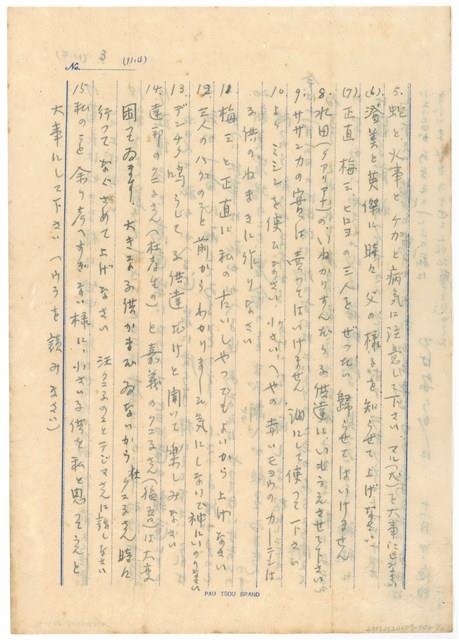 No. 3 (11.4)
5. 蛇と火事とケガと病気に注意して下さい マル(犬)を大事にしなさい
(6) 澄美と英傑に時々父の様子を知らせて上げなさい
(7) 正直、梅三、ヒロヨの三人をぜったい帰らせてはいけません
8. 水田(アリ)のいねかりすんだら子供達にいもうえさせて下さい
9. サザンカの實は賣ってはいけません 油にして使って下さい
10. よくミシンを使ひなさい 小さいへやの赤いモヨウのカーテンは
子供のねまきに作りなさい
11. 梅三と正直に私の古いしやつでもよいから上げなさい
12. 三人の事前からわかりました 気にしないで神にいのりなさい
13. デンチク鳴らして子供達だけと聞いて楽しみなさい
14. 達邦のクニ子さん(杜孝生の)と嘉義のクニ子さん(指吾)は大変
困ってゐます、大きな子供がまだゐないから 杜クニ子さん時々
行ってなぐさめて上げなさい 汪クニ子のことテジマさんに話しなさい
15. 私のこと余り考へすぎない様に、小さい子供を私と思ってうんと
大事にして下さい (ウラを読みなさい)
PAU TSOU BRAND